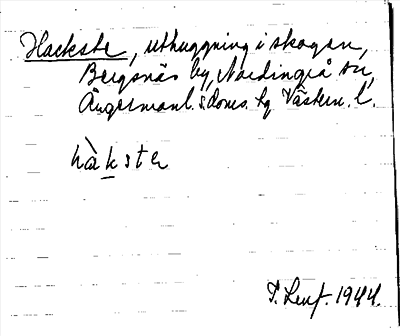 Hackste, uthuggning i skogen,
Bergsnäs by, Nordingrå sn,
Ångermanl. s. doms. hg Västern. l.
hàkste
1944.